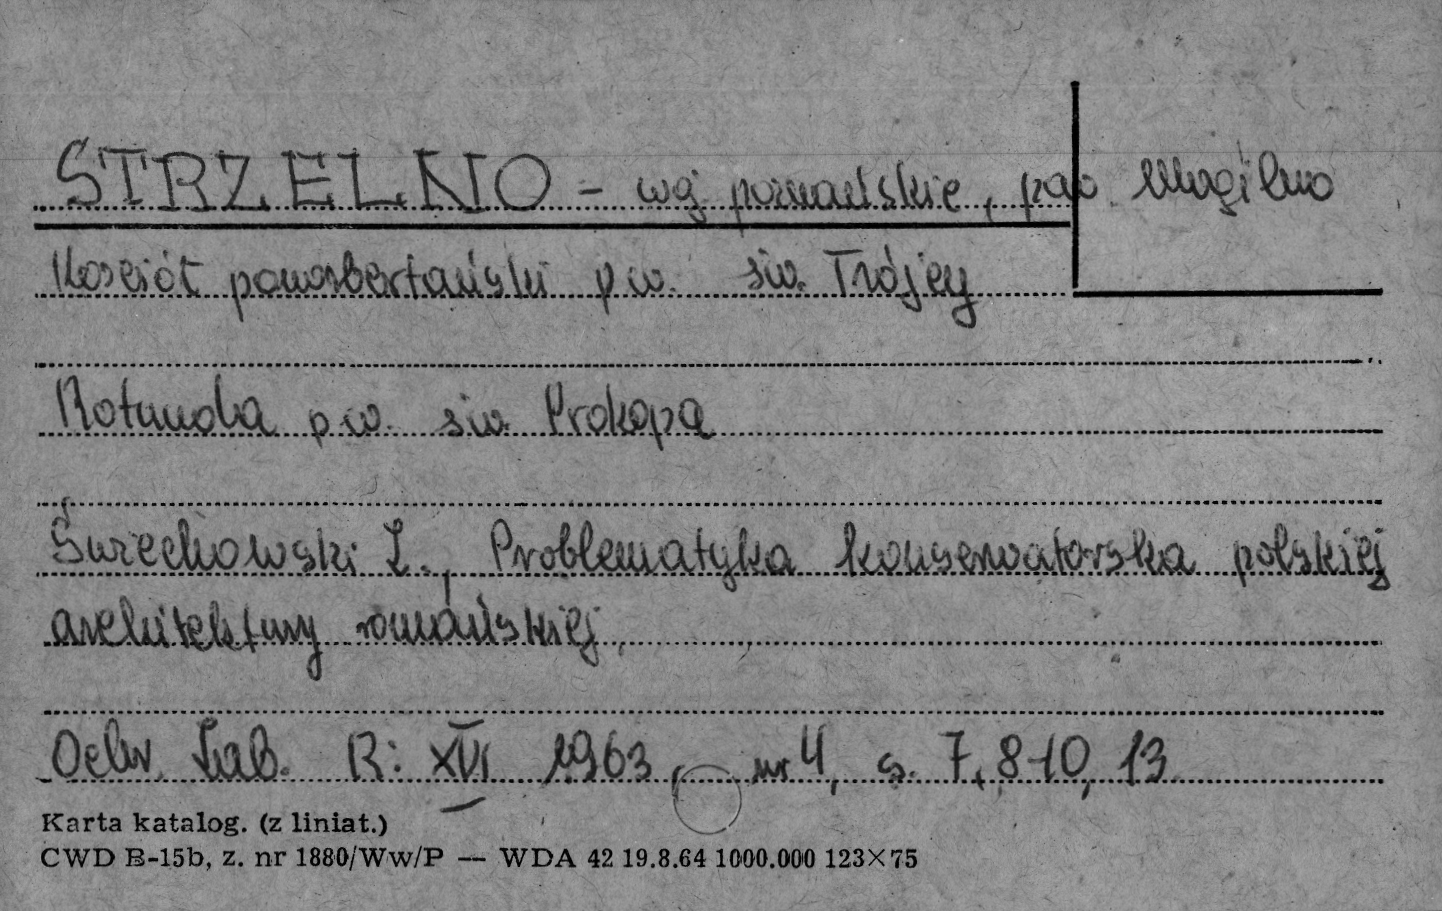 STRZELNO – woj. poznańskie, pow. Mogilno
Kościół ponorbertański p.w. św. Trójcy
Rotunda p.w. św. Prokopa
Świechowski Z., Problematyka konserwatorska polskiej
architektury romańskiej,
Ochr. Zab. R: XVI 1963, nr 4, s. 7, 8-10, 13
Karta katalog. (z liniat.)
CWD B-15b, z. nr 1880/Ww/P — WDA 42 19.8.64 1000.000 123×75